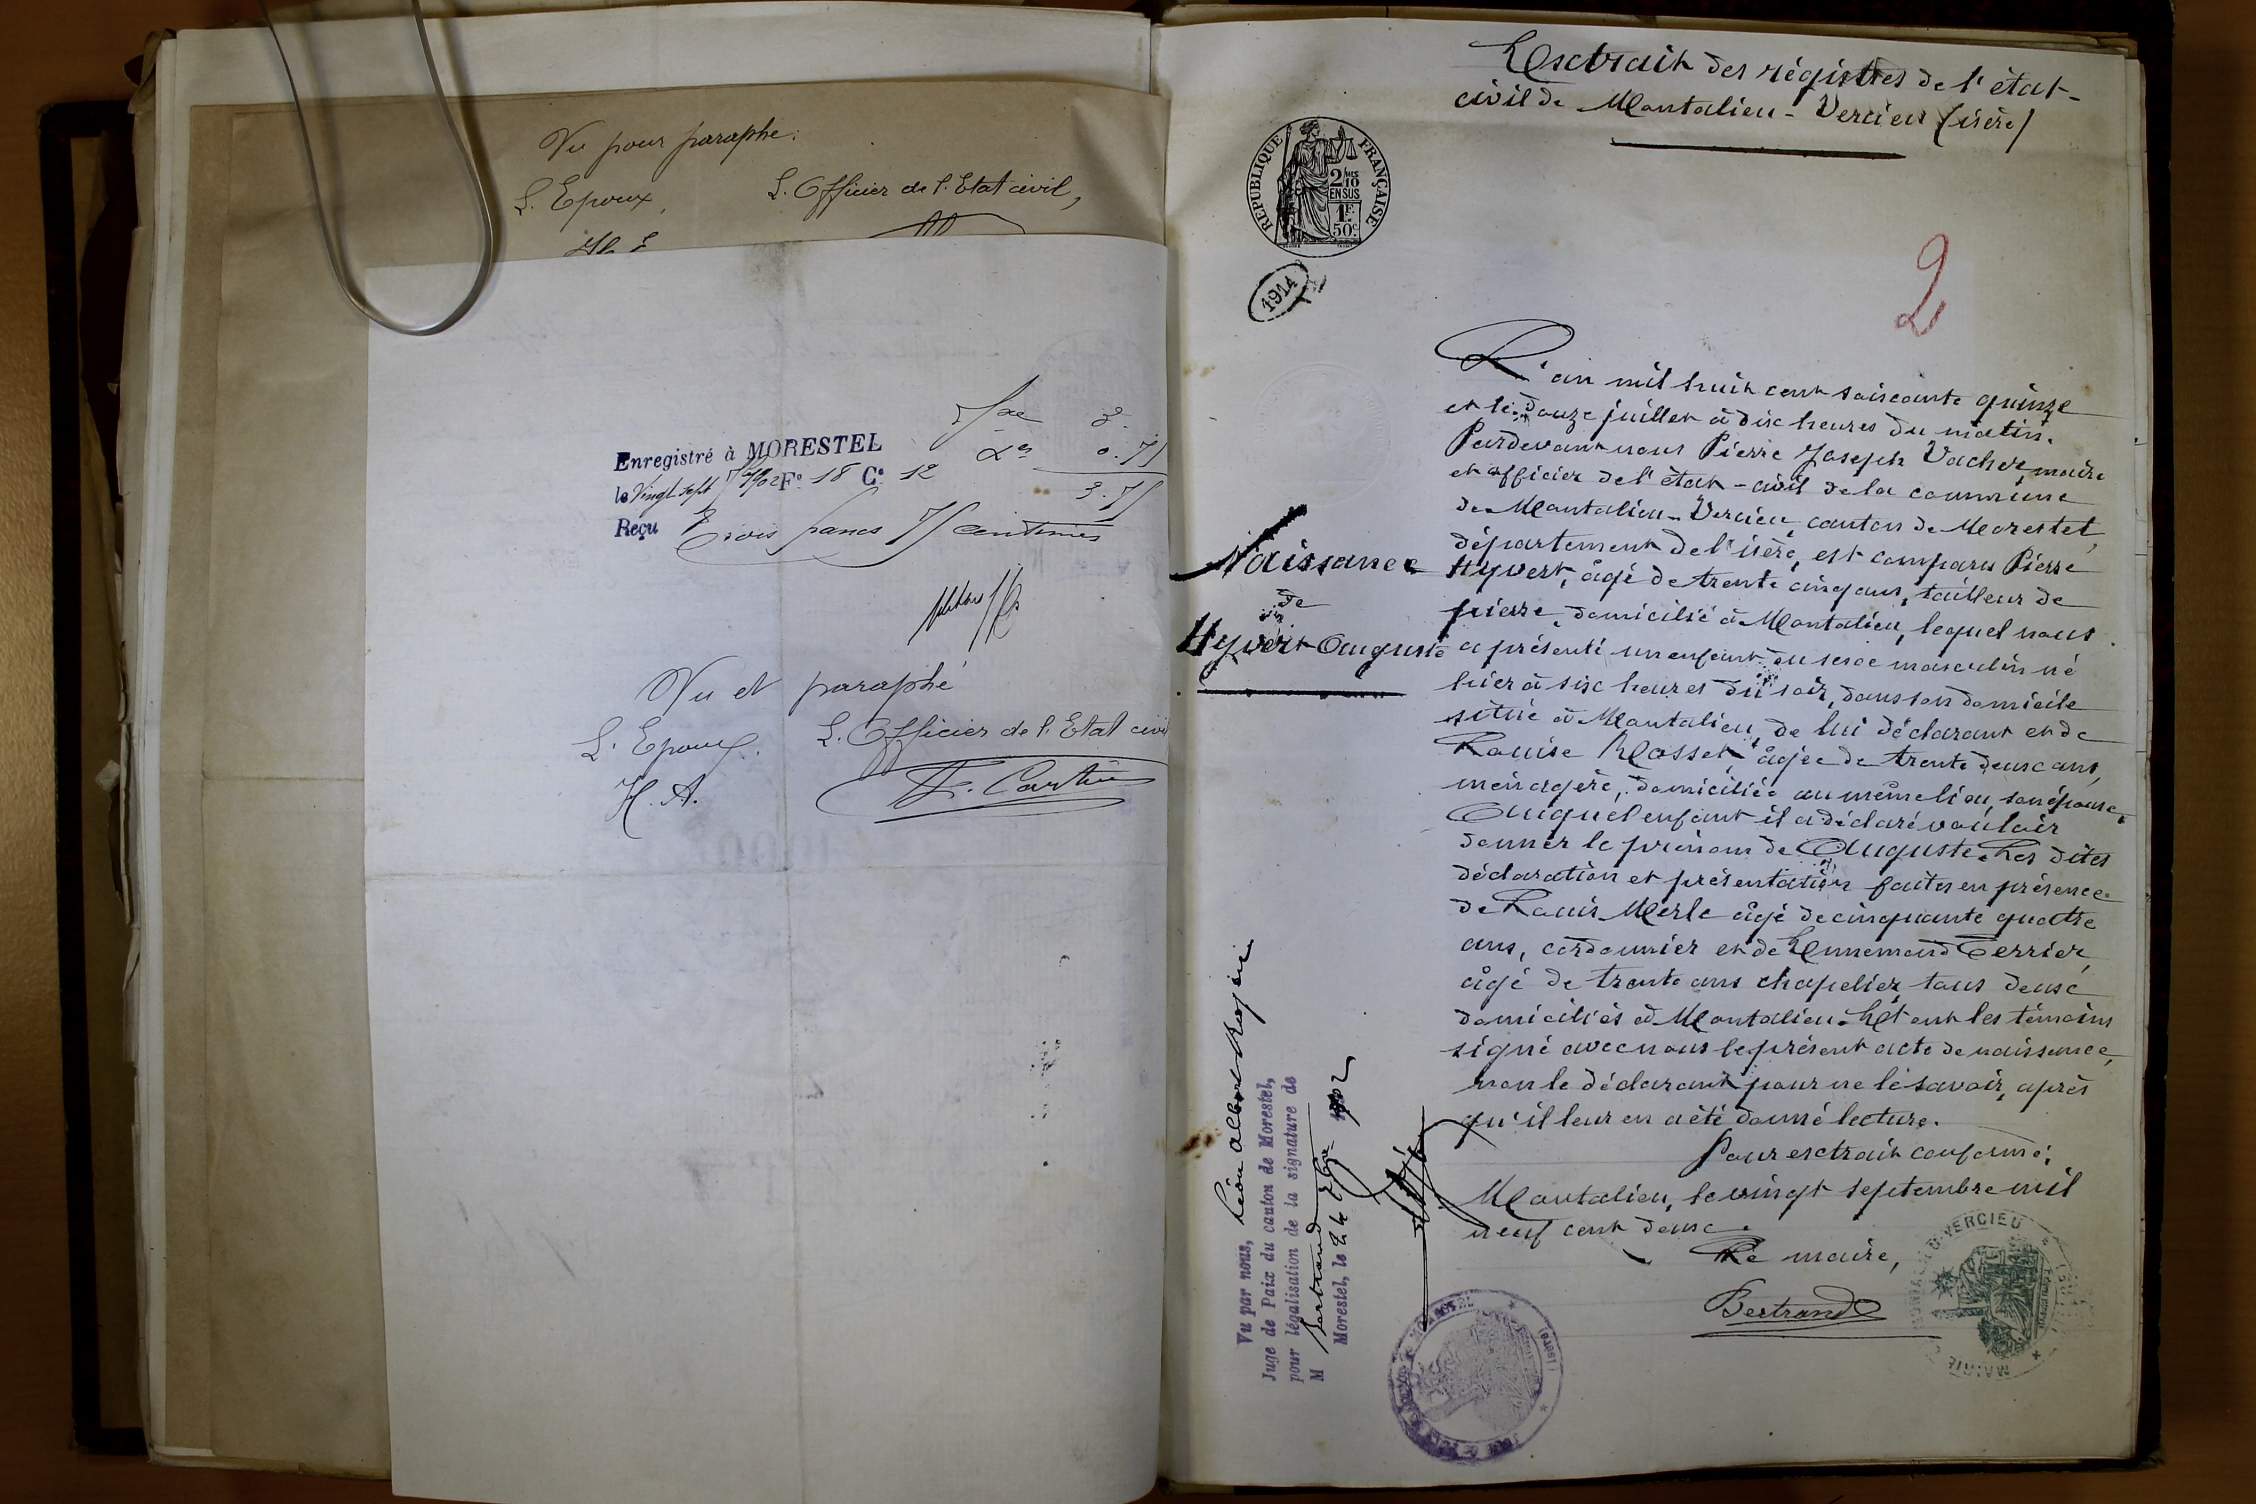 Vu pour paraphe.
L. Epoux,
L. Officier de l. Etat civil,
3.
0.75
3.75
Enregistré à MORESTEL
le Vingt sept 1902 F° 18 C° 12
Reçu Trois francs 75 centimes
Vu et paraphé
L. Epoux.
L. Officier de l. Etat civil
H. A.
Extrait des régistres de l'état-
civil de Montalieu-Vercieu (isère)
REPUBLIQUE FRANÇAISE
2/10
EN SUS
1F.
50c
1914
2
Naissance
de
Hyvert Auguste
L'an mil huit cent soixante quinze
et le douze juillet à dix heures du matin.
Pardevant nous Pierre Joseph Vacher, maire
et officier de l'état-civil de la commune
de Montalieu-Vercieu, canton de Morestel,
département de l'isère, est comparu Pierre
Hyvert, âgé de trente cinq ans, tailleur de
pierre, domicilié à Montalieu, lequel nous
a présenté un enfant du sexe masculin né
hier à six heures du soir, dans son domicile
situé à Montalieu, de lui déclarant et de
Louise Rosset, âgée de trente deux ans,
ménagère, domiciliée au même lieu, son épouse,
Auquel enfant il a déclaré vouloir
donner le prénom de Auguste. Les dites
déclaration et présentation faites en présence
de Louis Merle âgé de cinquante quatre
ans, cordonnier et de Ennemond Terrier,
âgé de trente ans chapelier, tous deux
domiciliés à Montalieu. Et ont les témoins
signé avec nous le présent acte de naissance,
non le déclarant pour ne le savoir, après
qu'il leur en a été donné lecture.
Pour extrait conforme,
Montalieu, le vingt septembre mil
neuf cent deux.
Le maire,
Bertrand
Vu par nous, Léon Albert
Juge de Paix du canton de Morestel,
pour légalisation de la signature de
M Bertrand
Morestel, le 24 1902
VERCIEU
MAIRIE